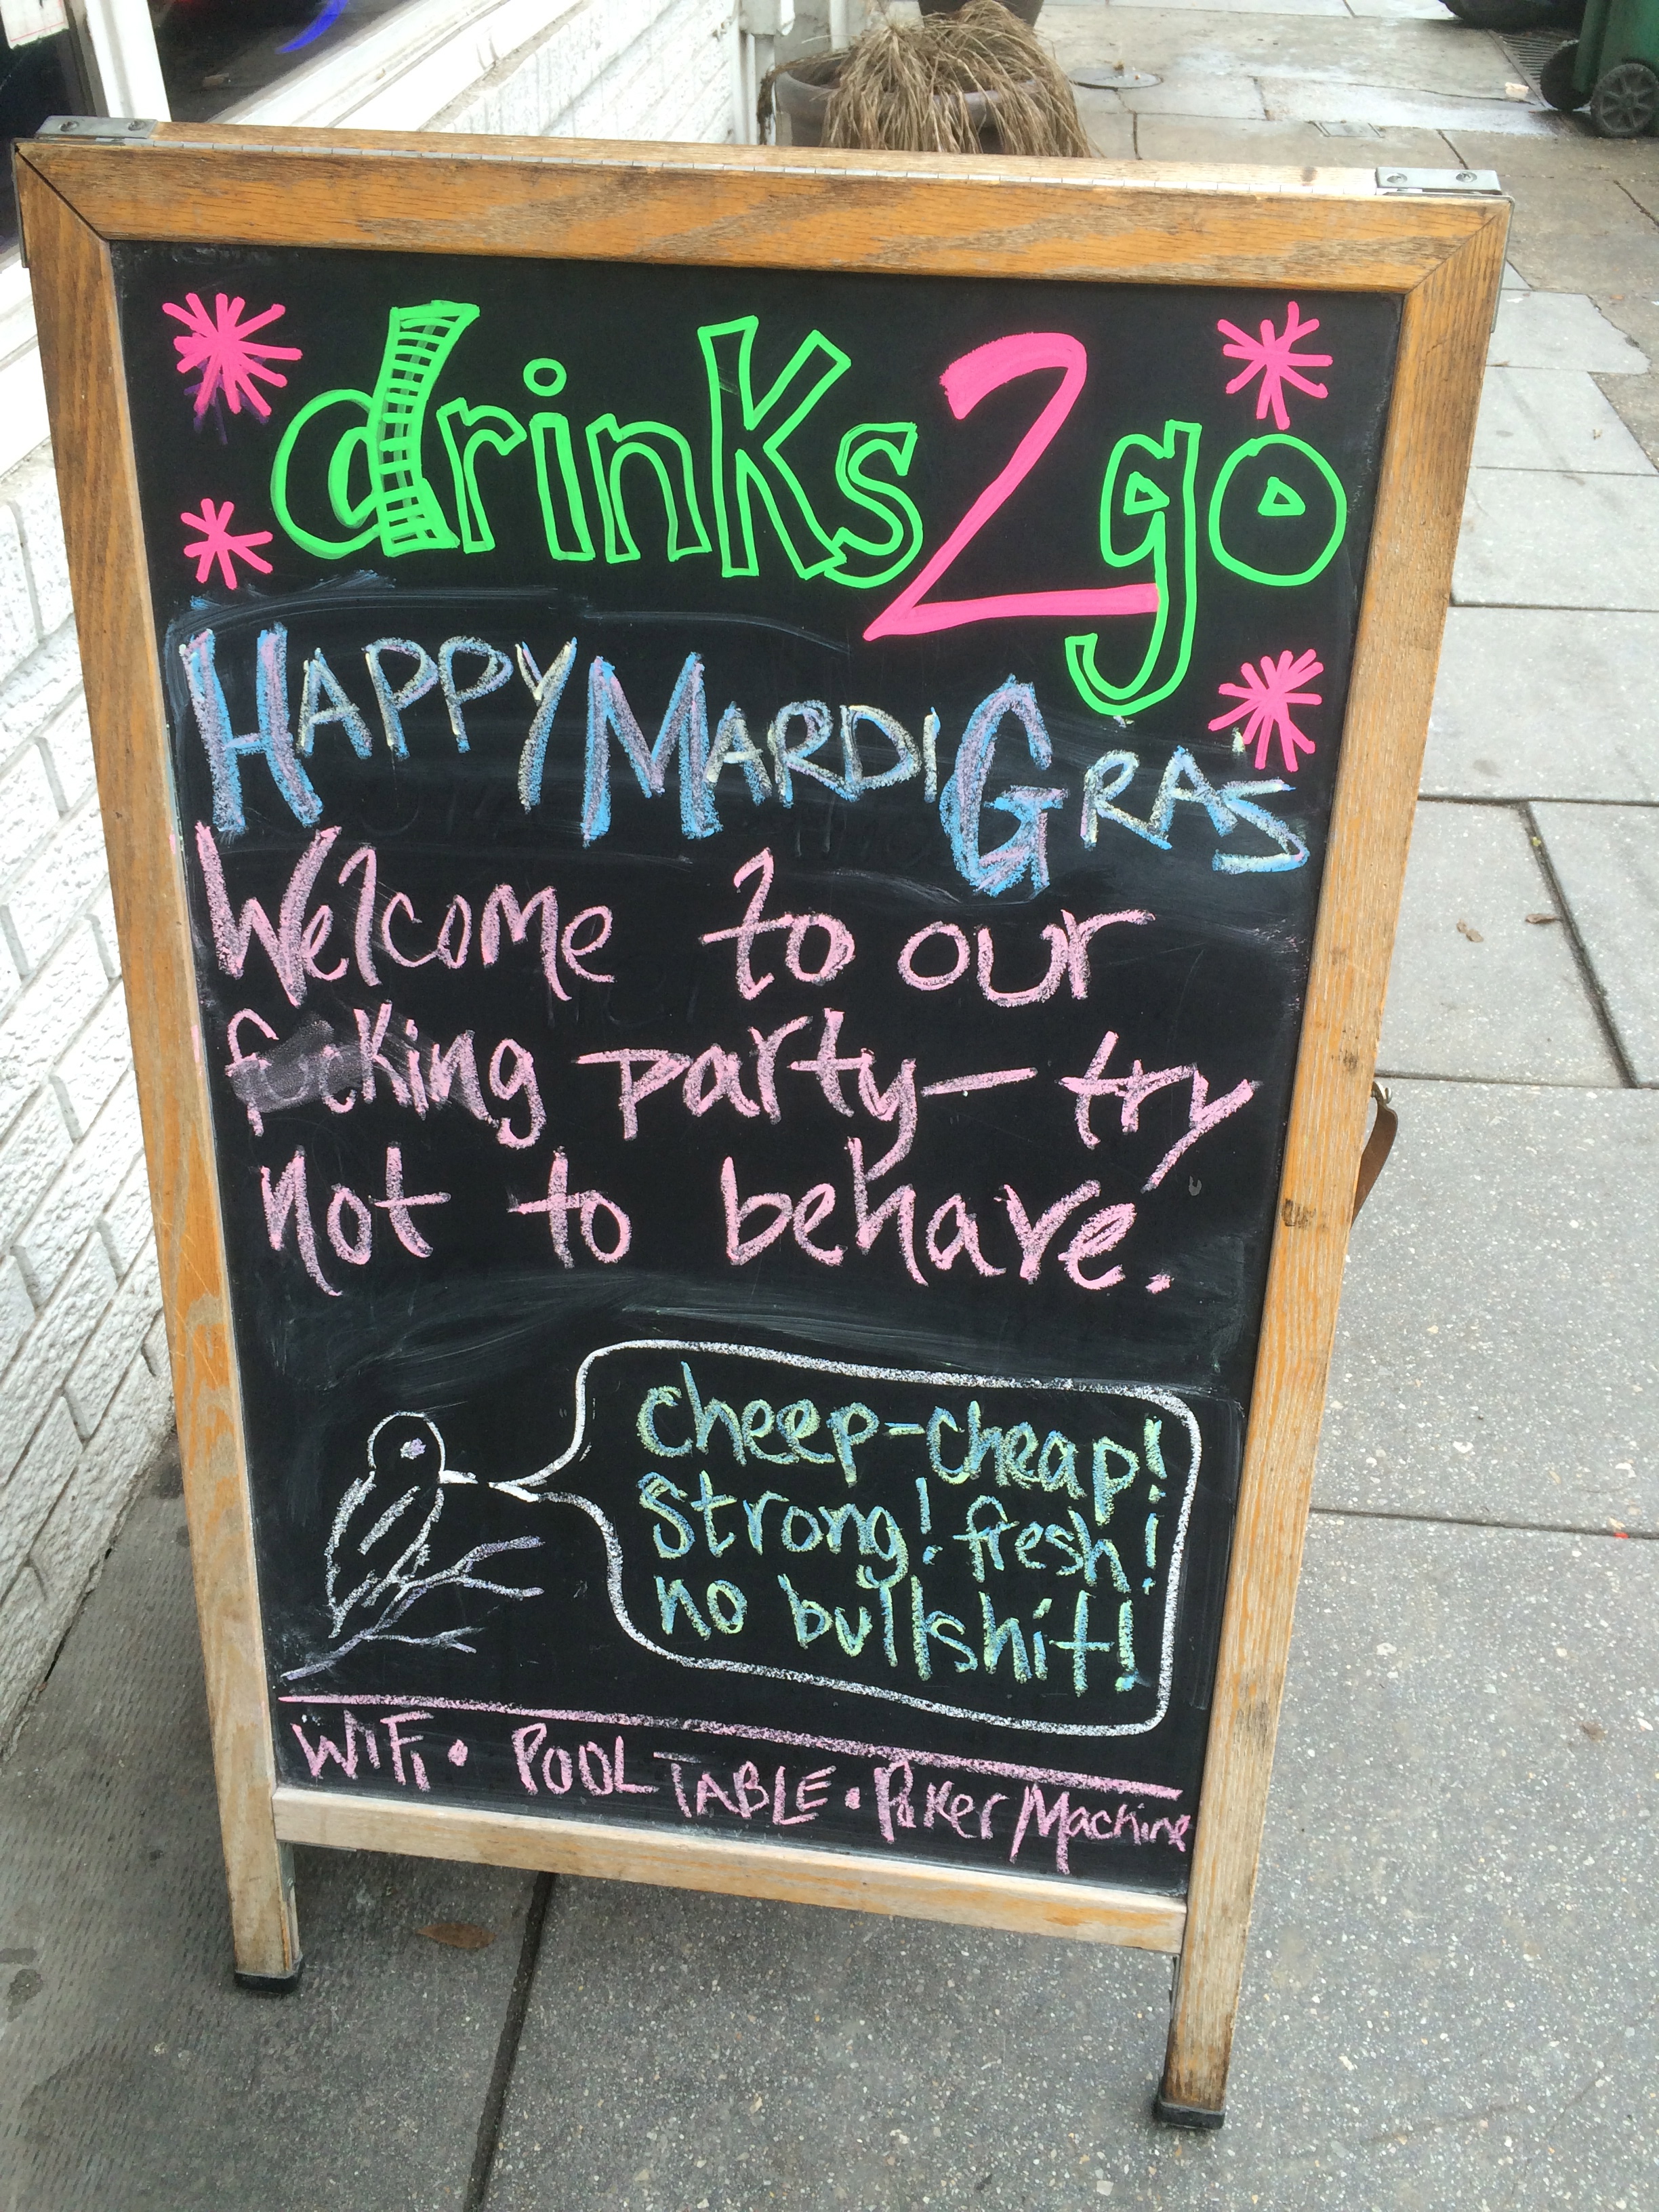 drinks2go
HAPPY MARDI GRAS
Welcome to our
fucking party—try
not to behave.
cheep-cheap!
strong! fresh!
no bullshit!
WiFi • POOL TABLE • Poker Machine